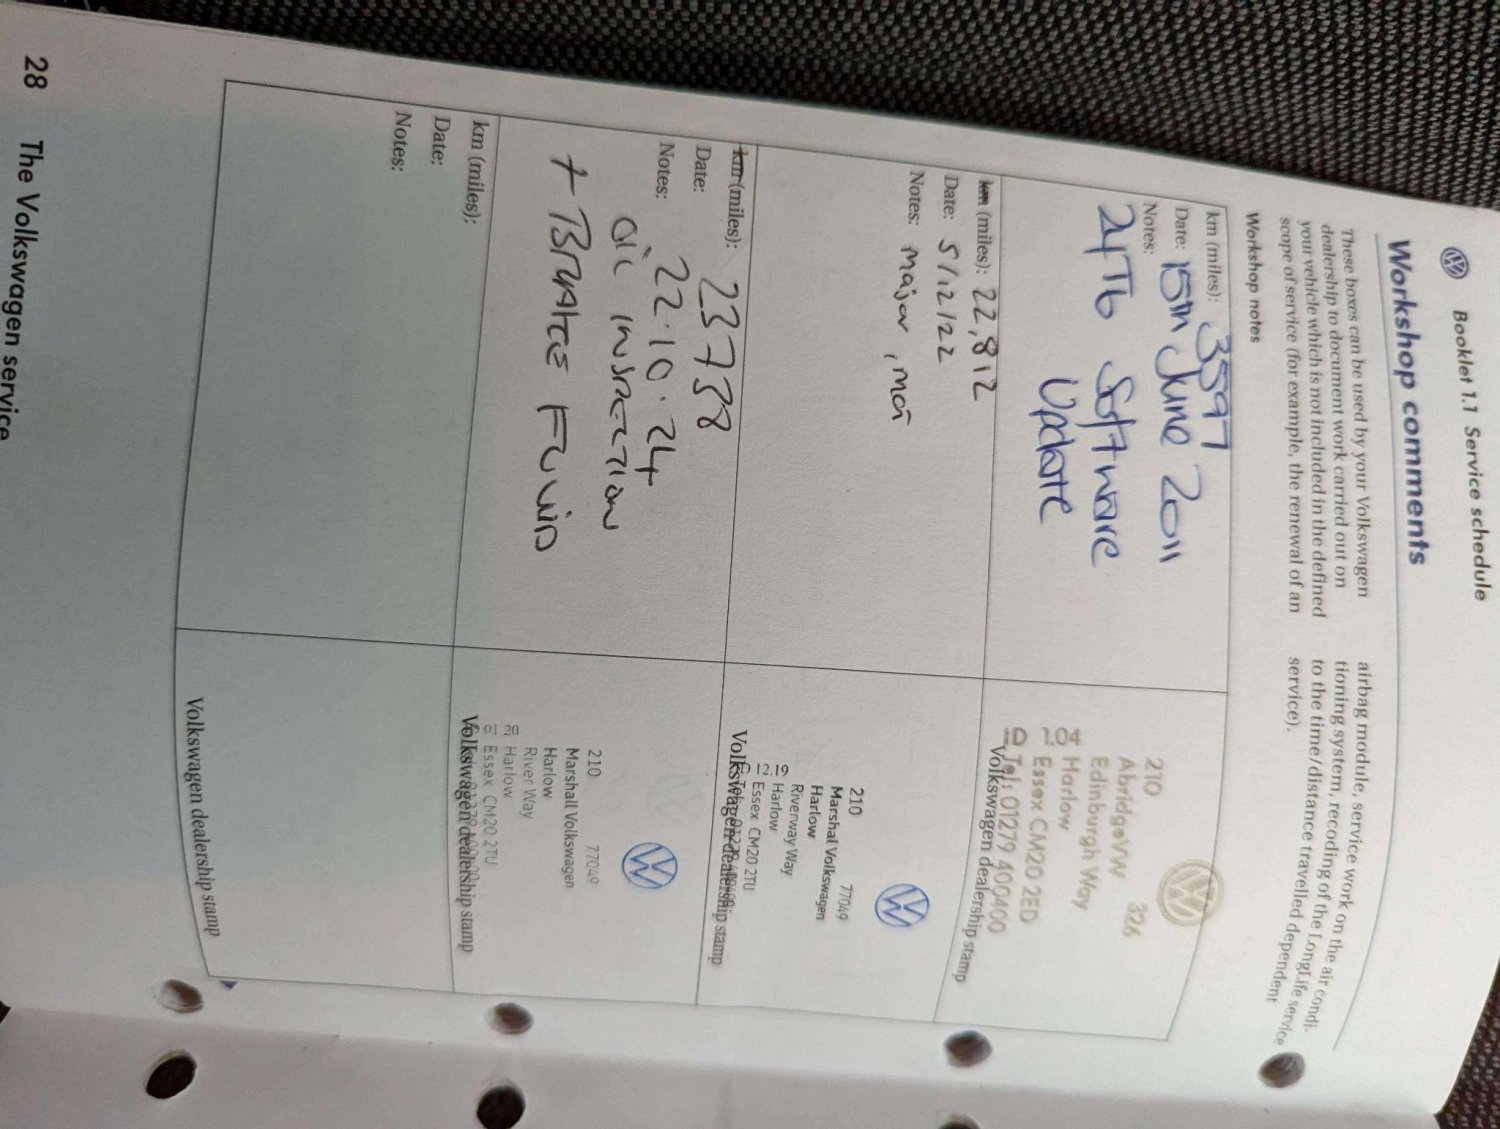 Booklet 1.1 Service schedule
Workshop comments
These boxes can be used by your Volkswagen
dealership to document work carried out on
your vehicle which is not included in the defined
scope of service (for example, the renewal of an
airbag module, service work on the air condi-
tioning system, recoding of the LongLife service
to the time/distance travelled dependent
service).
Workshop notes
km (miles): 3597
Date: 15th June 2011
Notes:
24T6 Software
Update
210 326
AbridgeVW
Edinburgh Way
Harlow
Essex CM20 2ED
Tel: 01279 400400
Volkswagen dealership stamp
km (miles): 22,812
Date: 5/12/22
Notes: major, mot
210 77049
Marshal Volkswagen
Harlow
Riverway Way
Harlow
Essex CM20 2TU
Volkswagen dealership stamp
km (miles): 23738
Date: 22.10.24
Notes: oil inspection
+ Brake Fluid
210 77049
Marshall Volkswagen
Harlow
River Way
Harlow
Essex CM20 2TU
Volkswagen dealership stamp
km (miles):
Date:
Notes:
Volkswagen dealership stamp
28 The Volkswagen service